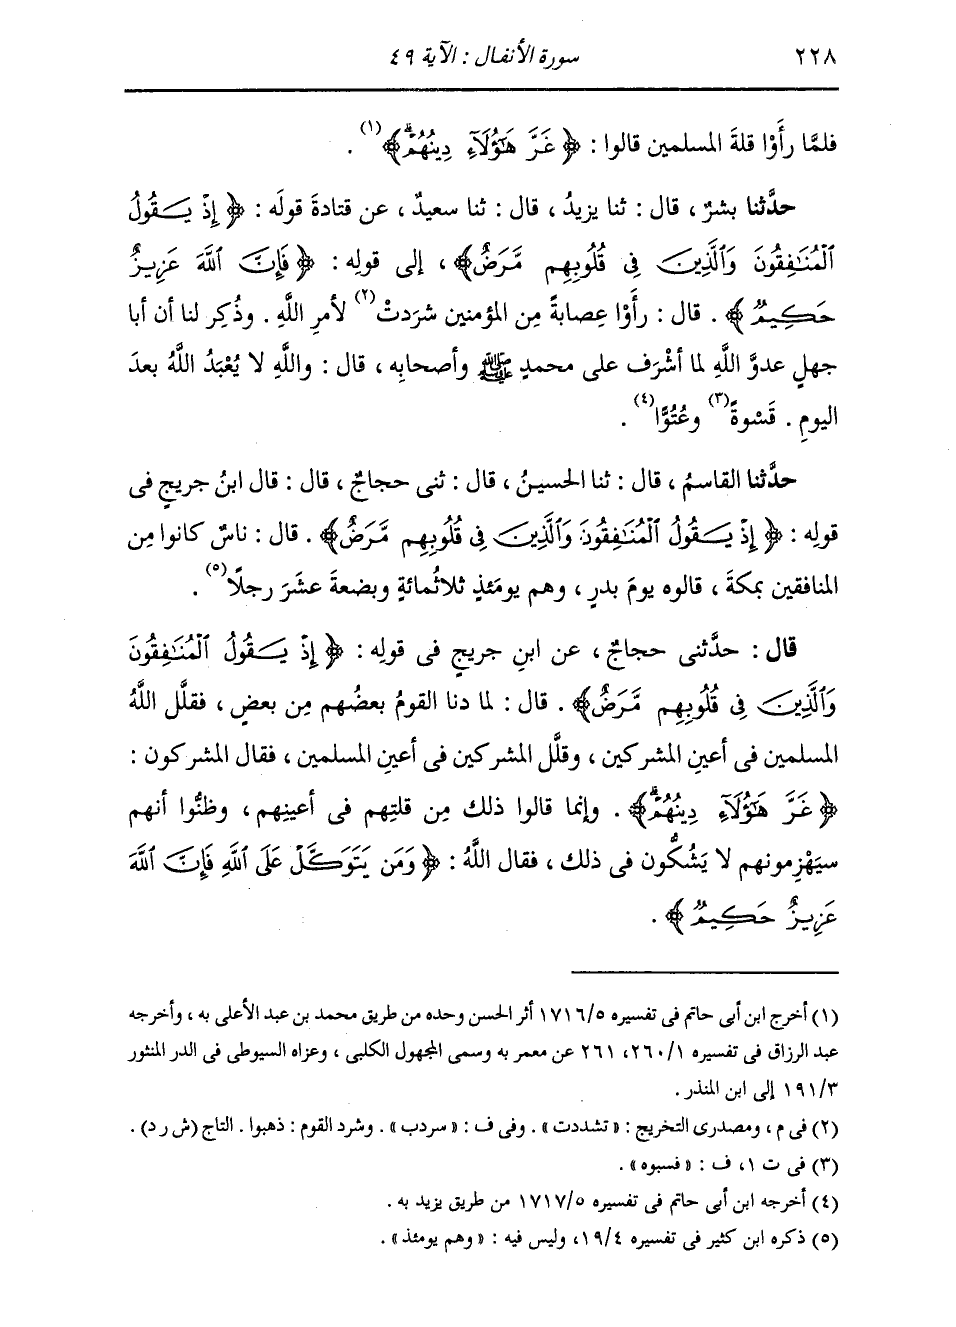 ٢٢٨
سورة الأنفال : الآية ٤٩
فلمَّا رأَوْا قلةَ المسلمين قالوا : ﴿ غَرَّ هَٰٓؤُلَآءِ دِينُهُمْۗ ﴾(١) .
حدَّثنا بشرٌ ، قال : ثنا يزيدُ ، قال : ثنا سعيدٌ ، عن قتادةَ قولَه : ﴿ إِذْ يَسَقُولُ
ٱلْمُنَٰفِقُونَ وَٱلَّذِينَ فِى قُلُوبِهِم مَّرَضٌ ﴾ ، إلى قولِه : ﴿ فَإِنَّ ٱللَّهَ عَزِيزٌ
حَكِيمٌ ﴾ . قال : رأَوْا عِصابةً مِن المؤمنين شرَدتْ(٢) لأمرِ اللَّهِ . وذُكِر لنا أن أبا
جهلٍ عدوَّ اللَّهِ لما أشْرَف على محمدٍ ﷺ وأصحابِه ، قال : واللَّهِ لا يُعْبَدُ اللَّهُ بعدَ
اليومِ . قَسْوةً(٣) وعُتُوًّا(٤) .
حدَّثنا القاسمُ ، قال : ثنا الحسينُ ، قال : ثنى حجاجٌ ، قال : قال ابنُ جريجٍ فى
قولِه : ﴿ إِذْ يَقُولُ ٱلْمُنَٰفِقُونَ وَٱلَّذِينَ فِى قُلُوبِهِم مَّرَضٌ ﴾ . قال : ناسٌ كانوا مِن
المنافقين بمكةَ ، قالوه يومَ بدرٍ ، وهم يومَئذٍ ثلاثُمائةٍ وبضعةَ عشَرَ رجلًا(٥) .
قال : حدَّثنى حجاجٌ ، عن ابنِ جريجٍ فى قولِه : ﴿ إِذْ يَقُولُ ٱلْمُنَٰفِقُونَ
وَٱلَّذِينَ فِى قُلُوبِهِم مَّرَضٌ ﴾ . قال : لما دنا القومُ بعضُهم مِن بعضٍ ، فقلَّل اللَّهُ
المسلمين فى أعينِ المشركين ، وقلَّل المشركين فى أعينِ المسلمين ، فقال المشركون :
﴿ غَرَّ هَٰٓؤُلَآءِ دِينُهُمْۗ ﴾ . وإنما قالوا ذلك مِن قلتِهم فى أعينِهم ، وظنُّوا أنهم
سيَهْزِمونهم لا يَشُكُّون فى ذلك ، فقال اللَّهُ : ﴿ وَمَن يَتَوَكَّلْ عَلَى ٱللَّهِ فَإِنَّ ٱللَّهَ
عَزِيزٌ حَكِيمٌ ﴾ .
(١) أخرج ابن أبى حاتم فى تفسيره ١٧١٦/٥ أثر الحسن وحده من طريق محمد بن عبد الأعلى به ، وأخرجه
عبد الرزاق فى تفسيره ٢٦٠/١، ٢٦١ عن معمر به وسمى المجهول الكلبى ، وعزاه السيوطى فى الدر المنثور
١٩١/٣ إلى ابن المنذر .
(٢) فى م ، ومصدرى التخريج : « تشددت » . وفى ف : « سردب » . وشرد القوم : ذهبوا . التاج (ش ر د) .
(٣) فى ت ١، ف : « فسبوه » .
(٤) أخرجه ابن أبى حاتم فى تفسيره ١٧١٧/٥ من طريق يزيد به .
(٥) ذكره ابن كثير فى تفسيره ١٩/٤، وليس فيه : « وهم يومئذ » .